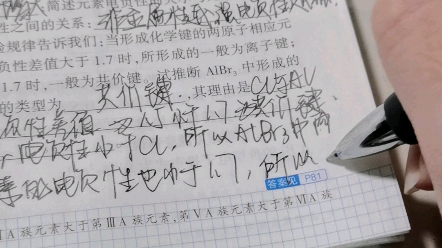 简述元素电负性
性之间的关系:非金属性越强电负性
验规律告诉我们:当形成化学键的两原子相应元
负性差值大于1.7时,所形成的一般为离子键;
1.7时,一般为共价键。试推断AlBr₃中形成的
的类型为 共价键 ,其理由是Cl与Al
电负性差值 小于1.7 共价键,
电负性小于Cl,所以AlBr3中两
素的电负性也小于1.7,所以
答案见 P81
IA族元素大于第ⅢA族元素,第ⅤA族元素大于第ⅥA族